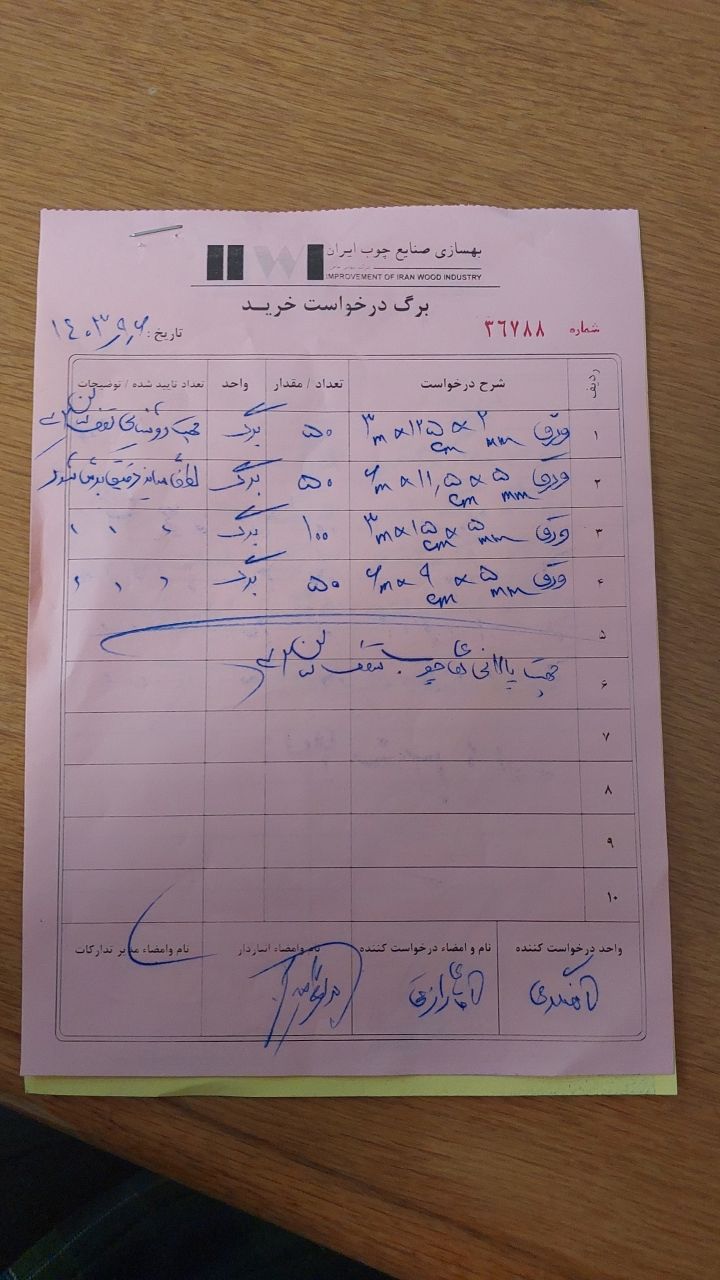 بهسازی صنایع چوب ایران
IMPROVEMENT OF IRAN WOOD INDUSTRY
برگ درخواست خرید
شماره ۳۶۷۸۸
تاریخ: ۱۴۰۳٫۹٫۶
ردیف شرح درخواست تعداد / مقدار واحد تعداد تایید شده / توضیحات
۱ ورق ۲ mm × ۱۲۵ cm × ۳ m ۵۰ برگ جهت روشنایی سقف
۲ ورق ۵ mm × ۱۱٫۵ cm × ۶ m ۵۰ برگ لطفا سایز دقیق برش شود
۳ ورق ۵ mm × ۱۵ cm × ۳ m ۱۰۰ برگ " " "
۴ ورق ۵ mm × ۹ cm × ۶ m ۵۰ برگ " " "
۵
۶ جهت های چوب سقف
۷
۸
۹
۱۰
واحد درخواست کننده نام و امضاء درخواست کننده نام وامضاء انباردار نام وامضاء مدیر تدارکات